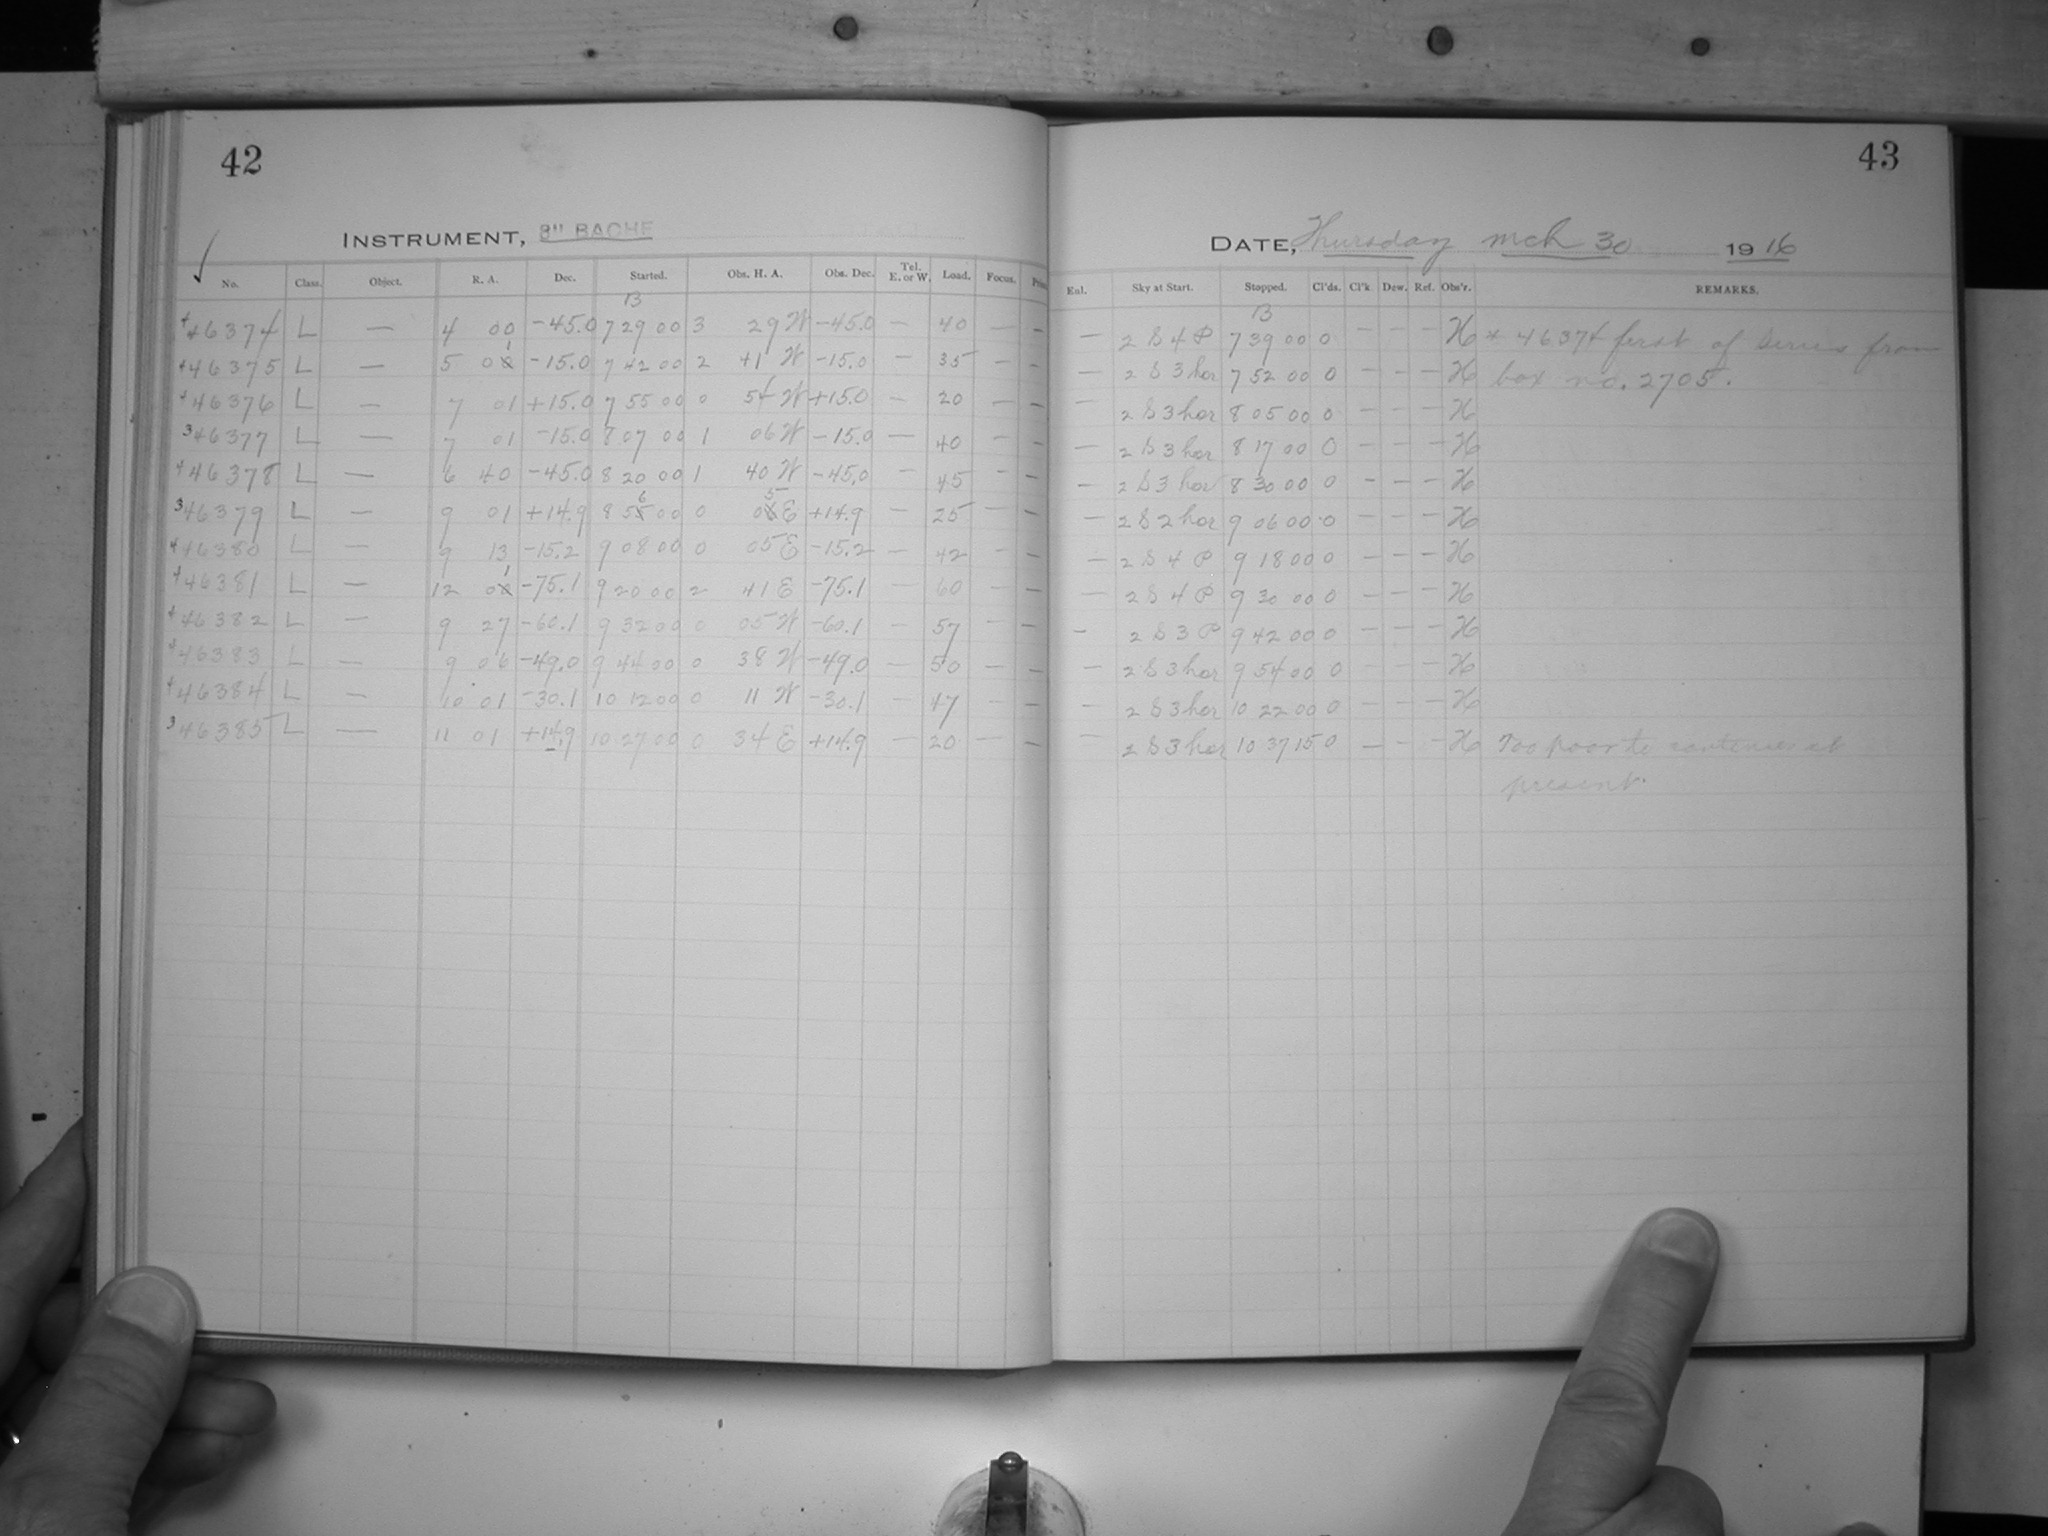 42
INSTRUMENT, 8" BACHE
No. Class. Object. R. A. Dec. Started. Obs. H. A. Obs. Dec. Tel. E. or W. Load. Focus.
B
46374 L — 4 00 -45.0 7 29 00 3 29 W -45.0 — 40 — —
46375 L — 5 01 -15.0 7 42 00 2 41 W -15.0 — 35 — —
46376 L — 7 01 +15.0 7 55 00 0 54 W +15.0 — 20 — —
46377 L — 7 01 -15.0 8 07 00 1 06 W -15.0 — 40 — —
46378 L — 6 40 -45.0 8 20 00 1 40 W -45.0 — 45 — —
46379 L — 9 01 +14.9 8 56 00 0 05 E +14.9 — 25 — —
46380 L — 9 13 -15.2 9 08 00 0 05 E -15.2 — 42 — —
46381 L — 12 01 -75.1 9 20 00 2 41 E -75.1 — 60 — —
46382 L — 9 27 -60.1 9 32 00 0 05 W -60.1 — 57 — —
46383 L — 9 06 -49.0 9 44 00 0 38 W -49.0 — 50 — —
46384 L — 10 01 -30.1 10 12 00 0 11 W -30.1 — 47 — —
46385 L — 11 01 +14.9 10 27 00 0 34 E +14.9 — 20 — —
43
DATE, Thursday Mch 30 1916
Enl. Sky at Start. Stopped. Cl'ds. Cl'k Dew. Ref. Obs'r. REMARKS.
B
— 2 S 4 P 7 39 00 0 — — — H * 46374 first of series from
— 2 S 3 hor 7 52 00 0 — — — H box no. 2705.
— 2 S 3 hor 8 05 00 0 — — — H
— 2 S 3 hor 8 17 00 0 — — — H
— 2 S 3 hor 8 30 00 0 — — — H
— 2 S 2 hor 9 06 00 0 — — — H
— 2 S 4 P 9 18 00 0 — — — H
— 2 S 4 P 9 30 00 0 — — — H
— 2 S 3 P 9 42 00 0 — — — H
— 2 S 3 hor 9 54 00 0 — — — H
— 2 S 3 hor 10 22 00 0 — — — H
— 2 S 3 hor 10 37 15 0 — — — H Too poor to continue at
present.